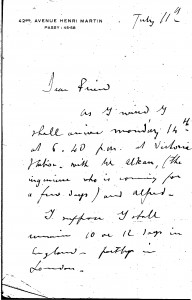 42BIS, AVENUE HENRI MARTIN
PASSY : 45-68
July 11th
Dear Friend
As I wired I
shall arrive monday 14th
at 6.40 p.m. at Victoria
Station with Mr Elkan, (the
ingenieur who is coming for
a few days) and Alfred.
I suppose I shall
remain 10 or 12 days in
England - partly in
London.